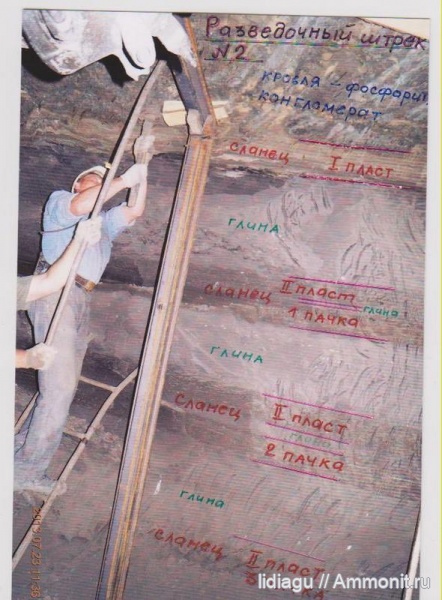 Разведочный штрек
N2
кровля – фосфорит
конгломерат
сланец I пласт
глина
сланец II пласт глина
1 пачка
глина
сланец II пласт
глина
2 пачка
глина
сланец II пласт
lidiagu // Ammonit.ru